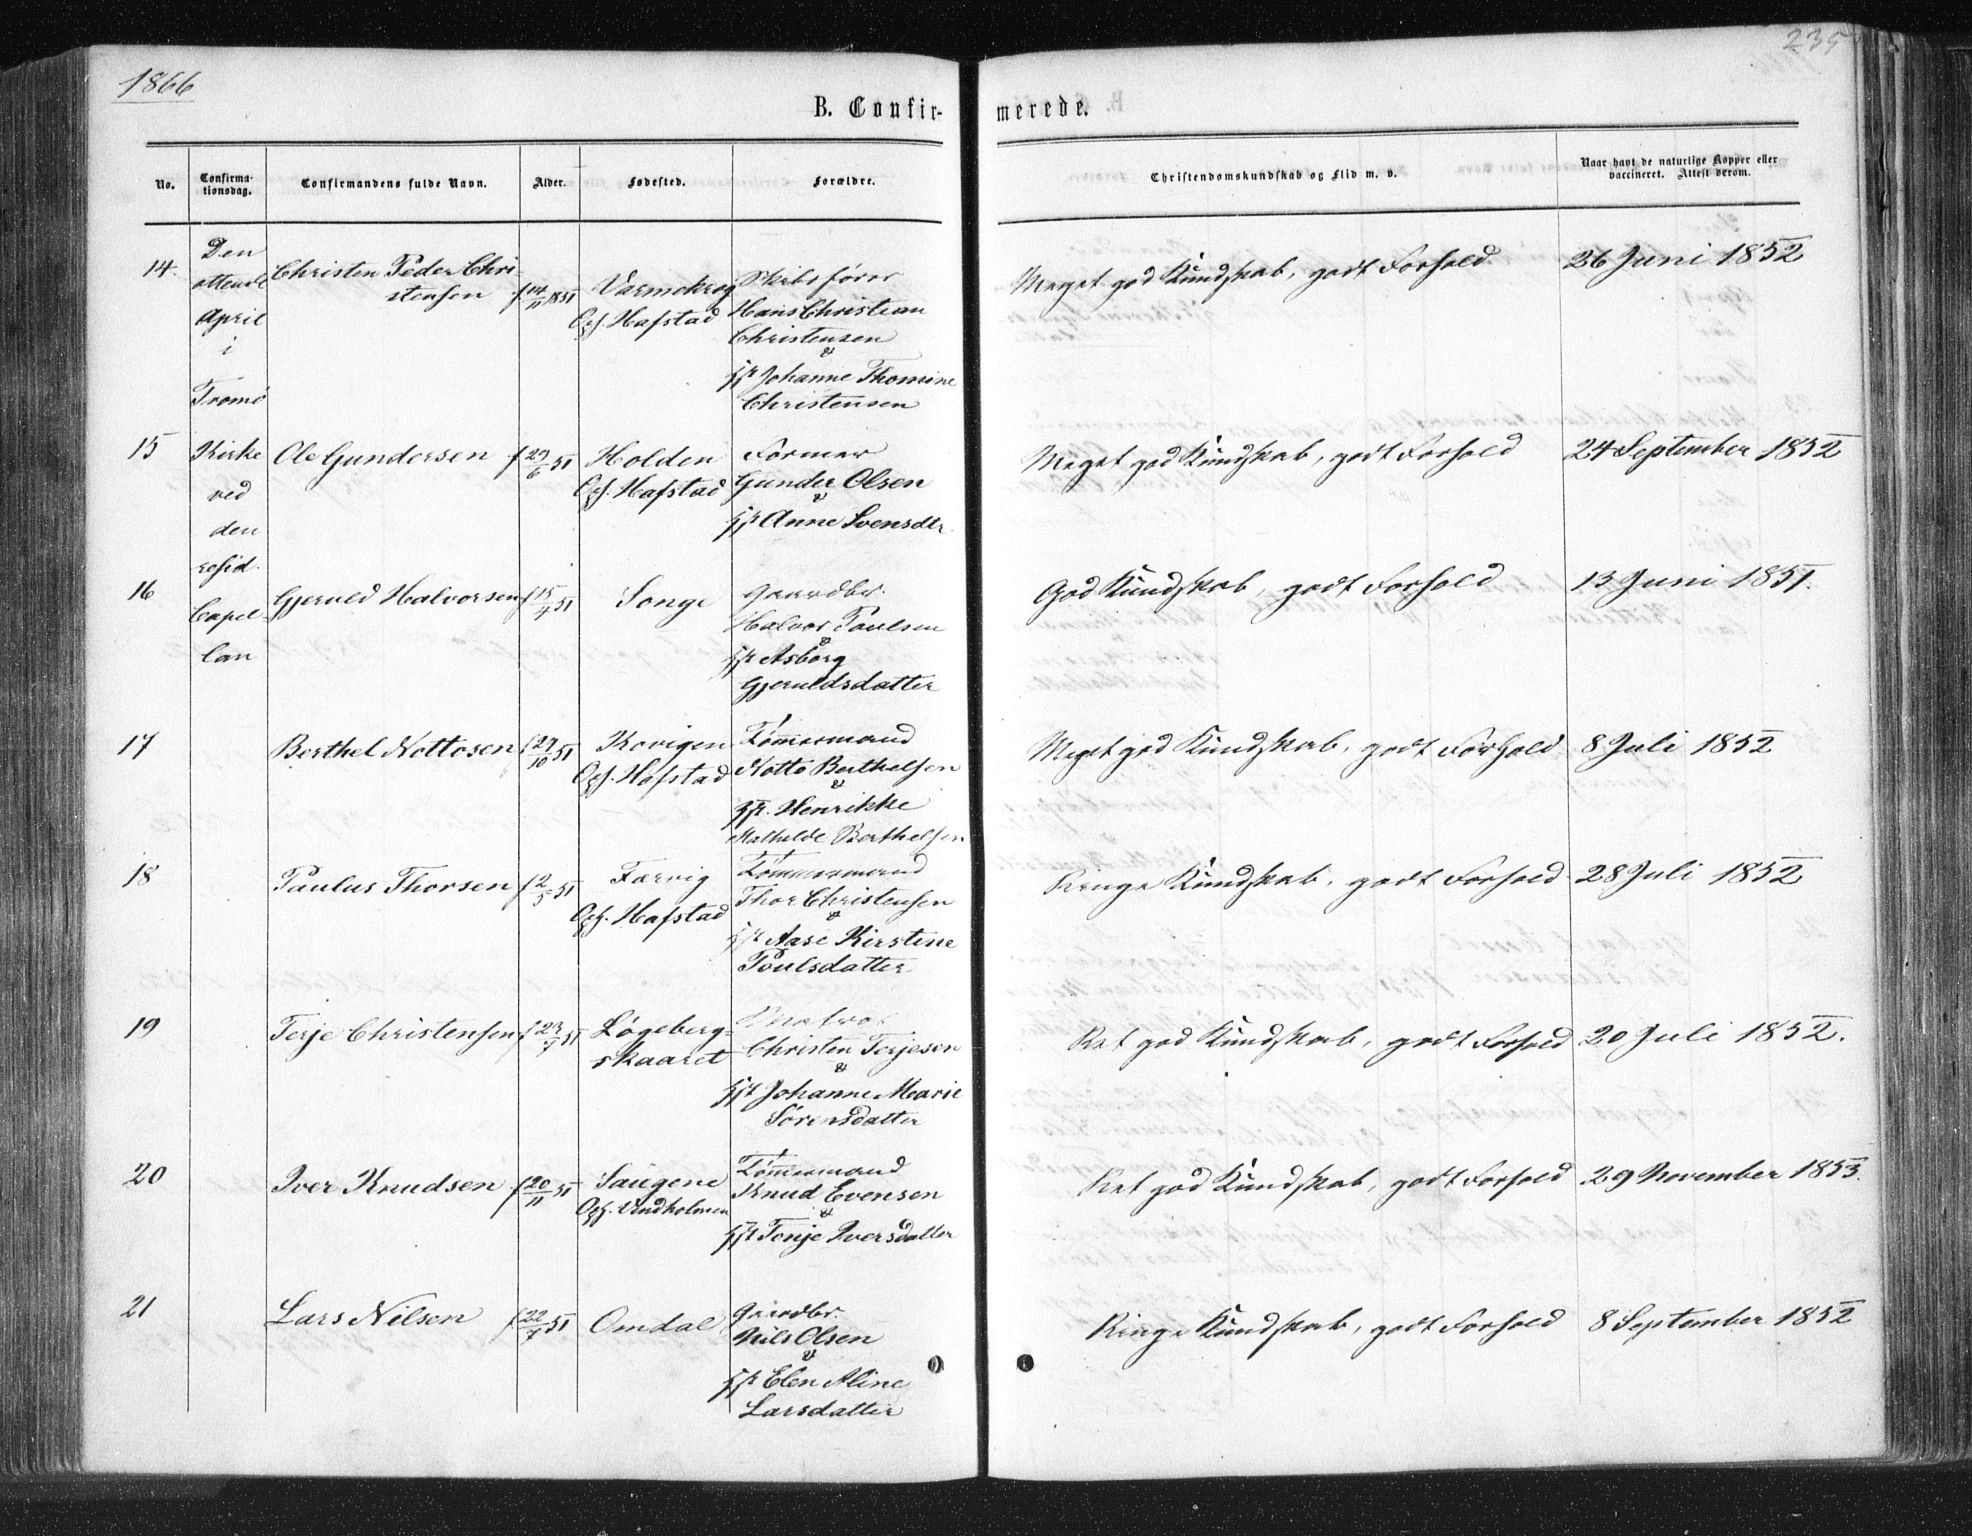 1866
235
B. Confir-
merede.
No.
Confirma-
tionsdag.
Confirmandens fulde Navn.
Alder.
Fødested.
Forældre.
Christendomskundskab og Flid m. v.
Naar havt de naturlige Kopper eller
vaccineret. Attest derom.
Den
ottende
April
i
Tromø
Kirke
ved
den
resid.
Capel-
lan
14.
Christen Peder Chri-
stensen
f 14/11 1851
Varmekrog
Opf. Hafstad
Skibsfører
Hans Christian
Christensen
&
Johanne Thomine
Christensen
Meget god Kundskab, godt Forhold
26 Juni 1852
15
Ole Gundersen
f 29/6 51
Holden
Opf. Hafstad
Former
Gunder Olsen
&
Anne Svensdtr.
Meget god Kundskab, godt Forhold
24 September 1852
16
Gjeruld Halvorsen
f 15/4 51
Songe
Gaardbr.
Halvor Paulsen
&
Asborg
Gjeruldsdatter
God Kundskab, godt Forhold
13 Juni 1851.
17
Berthel Nottosen
f 29/10 51
Kovigen
Opf. Hafstad
Tømmermand
Notto Berthelsen
&
Henrikke
Mathilde Berthelsen
Meget god Kundskab, godt Forhold
8 Juli 1852
18
Paulus Thorsen
f 2/5 51
Færvig
Opf. Hafstad
Tømmermand
Thor Christensen
&
Aase Kirstine
Poulsdatter
Ringe Kundskab, godt Forhold
28 Juli 1852
19
Terje Christensen
f 23/7 51
Løgeberg-
skaaret
Matros
Christen Terjesen
&
Johanne Marie
Sørensdatter
Ret god Kundskab, godt Forhold
20 Juli 1852.
20
Iver Knudsen
f 20/11 51
Saugene
Opf. Vindholmen
Tømmermand
Knud Evensen
&
Tonje Iversdatter
Ret god Kundskab, godt Forhold
29 November 1853.
21
Lars Nilsen
f 22/7 51
Omdal
Gaardbr.
Nils Olsen
&
Elen Aline
Larsdatter
Ringe Kundskab, godt Forhold
8 September 1852